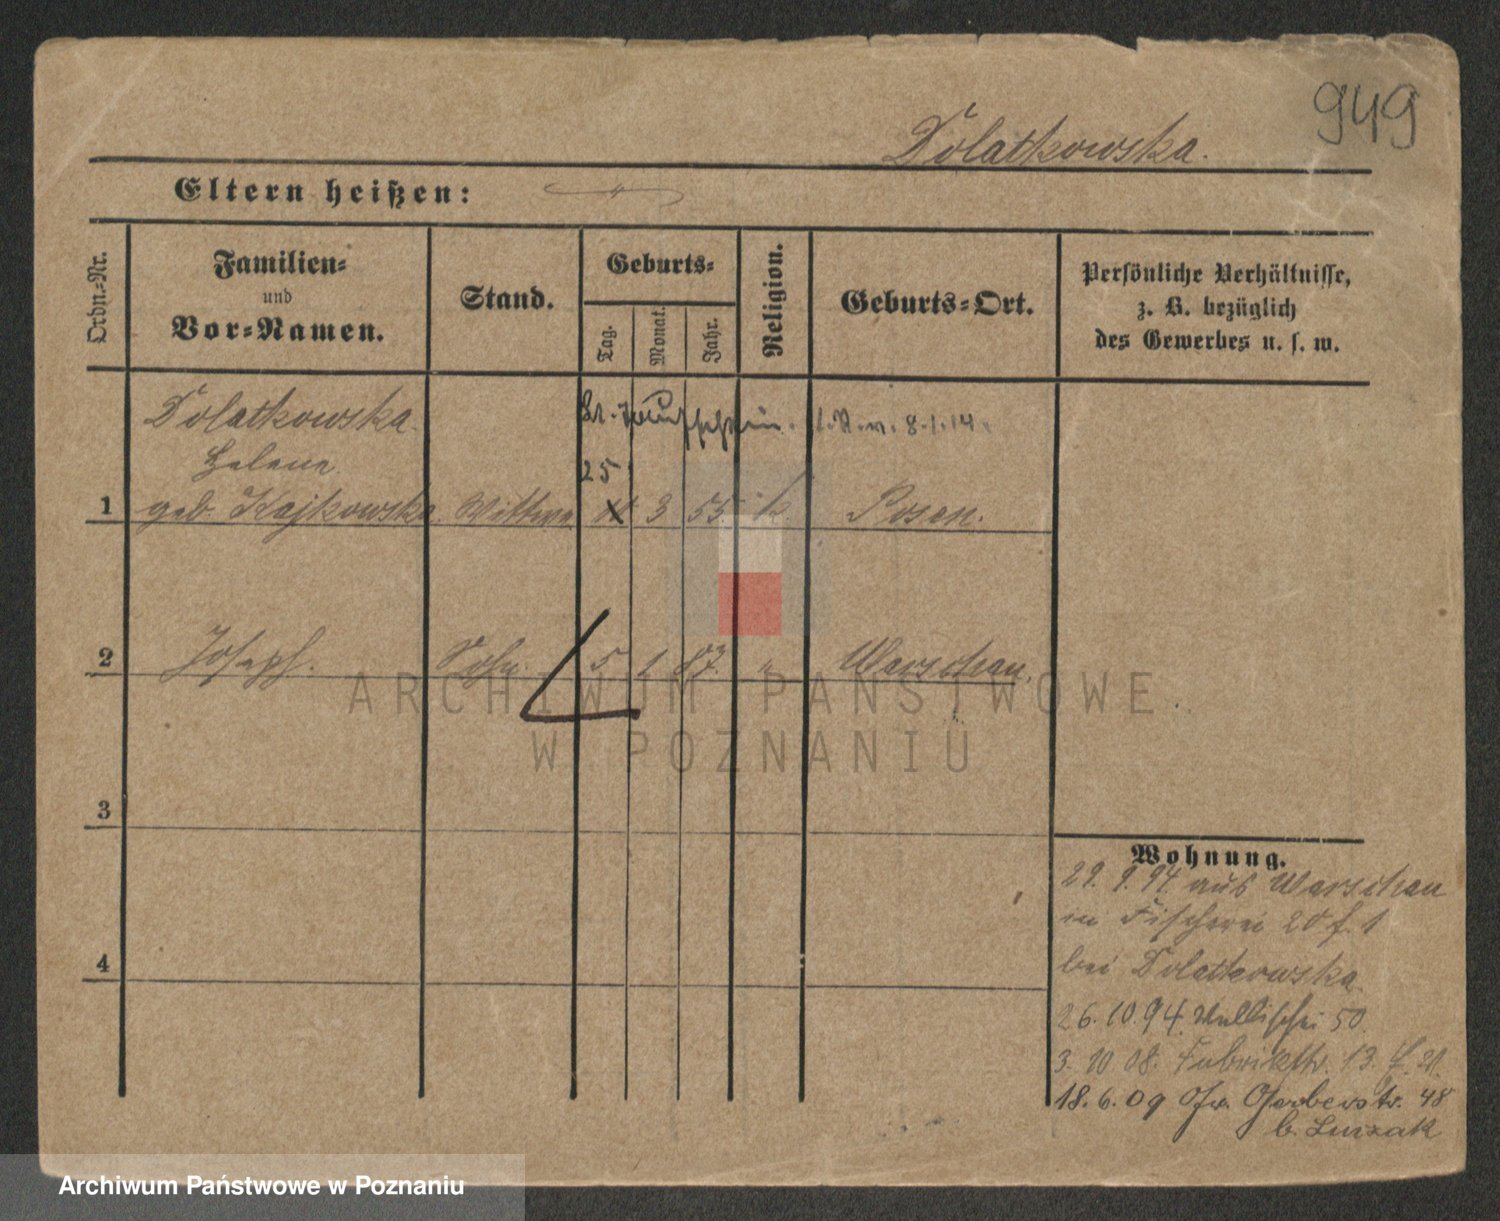 949
Dolatkowska.
Eltern heißen:
Ordn.-Nr.
Familien-
und
Vor-Namen.
Stand.
Geburts-
Tag.
Monat.
Jahr.
Religion.
Geburts-Ort.
Persönliche Verhältnisse,
z. B. bezüglich
des Gewerbes u. s. w.
Dolatkowska
8.1.14.
Helene
25
1 geb. Kajkowska Wittwe 3 55 k. Posen.
2 Joseph. Sohn. 5 1 87. " Warschau.
ARCHIWUM PAŃSTWOWE
W POZNANIU
3
4
Wohnung.
29. 9. 94 aus Warschau
in Fischerei 20 f. 1
bei Dolatkowska
26.10.94. Wallischei 50.
3. 10 08. Fabrikstr. 13.
18.6.09 Gr. Gerberstr. 48
b. Lurzak
Archiwum Państwowe w Poznaniu